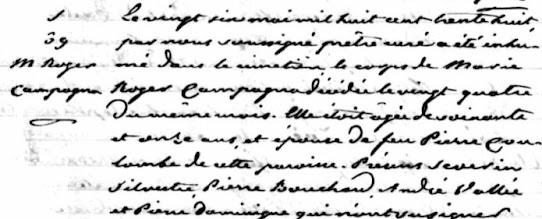 S
39
M Roger
Campagna
Le vingt six mai mil huit cent trente huit,
par nous soussigné prêtre curé a été inhu-
mé dans le cimetière le corps de Marie
Roger Campagna décédée le vingt quatre
du même mois. Elle étoit agée de soixante
et onze ans, et épouse de feu Pierre Cou-
lombe de cette paroisse. Présens Severin
Silvestre, Pierre Bouchard, André Vallée
et Pierre Domingue qui n'ont su signer